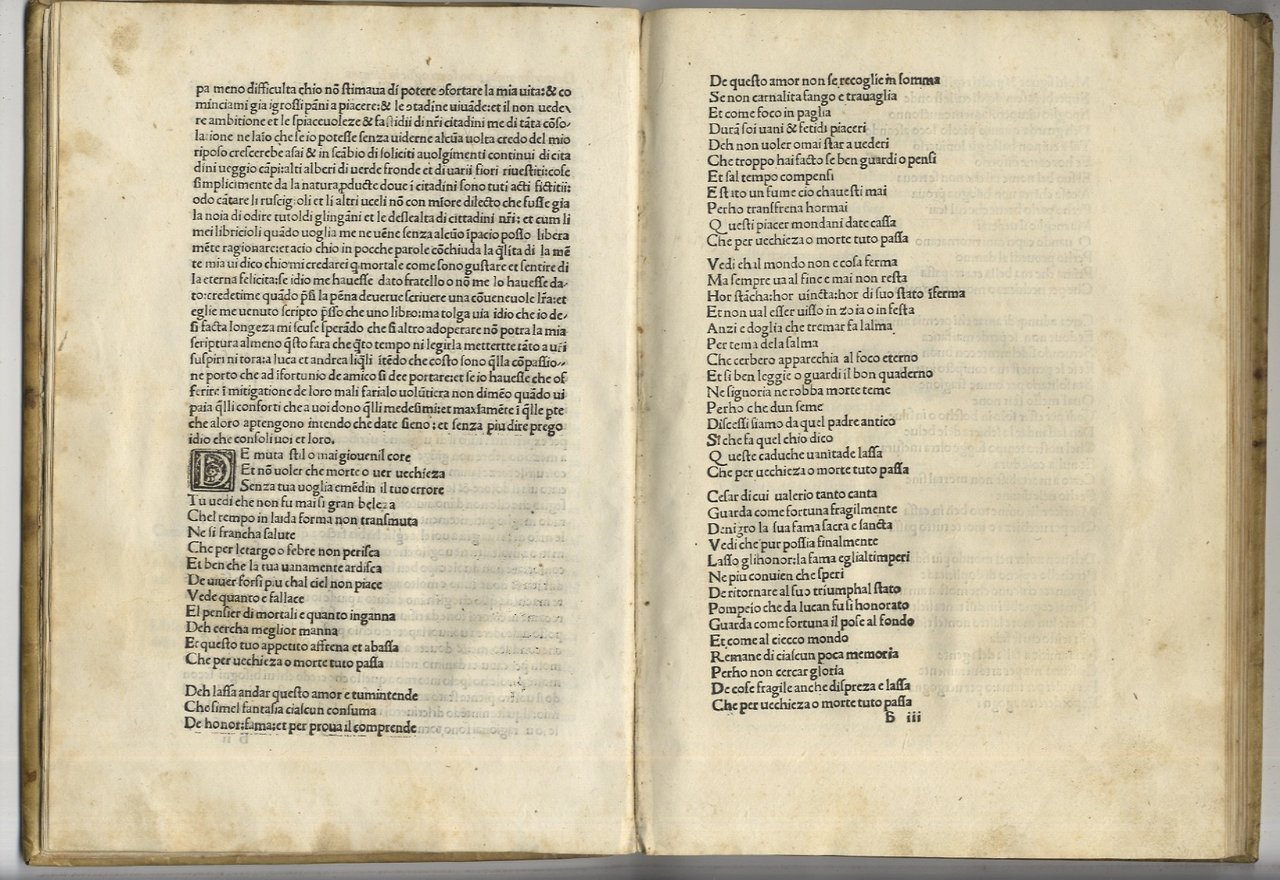 pa meno difficulta chio nō stimaua di potere ɔfortare la mia uita:& co
minciami gia igrossi pāni a piacere:& le ɔtadine uiuāde:et il non uede
re ambitione et le spiaceuoleze & fastidii di nr̄i citadini me di tāta cōso/
latione ne laīo che se io potesse senza uiderne alcūa uolta credo del mio
riposo crescerebe asai & in scābio di soliciti auolgimenti continui di cita
dini ueggio cāpi:alti alberi di uerde fronde et di uarii fiori riuestiti:cose
simplicimente da la natura ꝓducte doue i citadini sono tuti acti fictitii:
odo cātare li ruscignoli et li altri uceli nō con miore dilecto che fusse gia
la noia di odire tutoldi glingāni et le deslealta di cittadini nr̄i: et cum li
mei libricioli quādo uoglia me ne uēne senza alcūo īpacio posso libera
mēte ragionare:et acio chio in pocche parole cōchiuda la q̄lita di la mē
te mia ui dico chio mi credarei q mortale come sono gustare et sentire di
la eterna felicita:se idio me hauesse dato fratello o nō me lo hauesse da/
to:credetime quādo p̄si la pēna deuerue scriuere una cōuenuole lr̄a:et
eglie me uenuto scripto p̄sso che uno libro:ma tolga uia idio che io de/
si facta longeza mi scuse sperādo che si altro adoperare nō potra la mia
scriptura almeno q̄sto fara che q̄to tempo ni legirla mettertte tāto a ur̄i
suspiri ni tora:a luca et andrea liq̄li itēdo che costo sono q̄lla cōpassio/
ne porto che ad ifortunio de amico si dee portare:et se io hauesse che of
ferire ī mitigatione de loro mali farialo uolūtiera non dimēo quādo ui
paia q̄lli conforti che a uoi dono q̄lli medesimi:et maxīamēte ī q̄lle pte
che aloro aptengono intendo che date sieno: et senza piu dire prego
idio che consoli uoi et loro.
DE muta stil o mai giouenil core
Et nō uoler che morte o uer uechieza
Senza tua uoglia emēdin il tuo errore
Tu uedi che non fu mai si gran beleza
Chel tempo in laida forma non transmuta
Ne si francha salute
Che per letargo o febre non perisca
Et ben che la tua uanamente ardisca
De uiuer forsi piu chal ciel non piace
Vede quanto e fallace
El pensier di mortali e quanto inganna
Deh cercha meglior manna
Et questo tuo appetito affrena et abassa
Che per uechieza o morte tuto passa
Deh lassa andar questo amor e tumintende
Che simel fantasia ciascun consuma
De honor:fama:et per proua il comprende
De questo amor non se recoglie in somma
Se non carnalita fango e trauaglia
Et come foco in paglia
Durā soi uani & fetidi piaceri
Deh non uoler omai star a uederi
Che troppo hai facto se ben guardi o pensi
Et sal tempo compensi
E stato un fume cio chauesti mai
Perho transfrena hormai
Questi piacer mondani date cassa
Che per uechieza o morte tuto passa
Vedi chal mondo non e cosa ferma
Ma sempre ua al fine e mai non resta
Hor stācha:hor uincta:hor di suo stato īferma
Et non ual esser uisso in zoia o in festa
Anzi e doglia che tremar fa lalma
Per tema dela salma
Che cerbero apparechia al foco eterno
Et si ben leggie o guardi il bon quaderno
Ne signoria ne robba morte teme
Perho che dun seme
Discessi siamo da quel padre antico
Si che fa quel chio dico
Queste caduche uanitade lassa
Che per uechieza o morte tuto passa
Cesar di cui ualerio tanto canta
Guarda come fortuna fragilmente
Denigro la sua fama sacra e sancta
Vedi che pur possia finalmente
Lasso glihonor:la fama eglialtimperi
Ne piu conuien che speri
De ritornare al suo triumphal stato
Pompeio che da lucan fu si honorato
Guarda come fortuna il pose al fondo
Et come al ciecco mondo
Remane di ciascun poca memoria
Perho non cercar gloria
De cose fragile anche dispreza e lassa
Che per uechieza o morte tuto passa
b iii